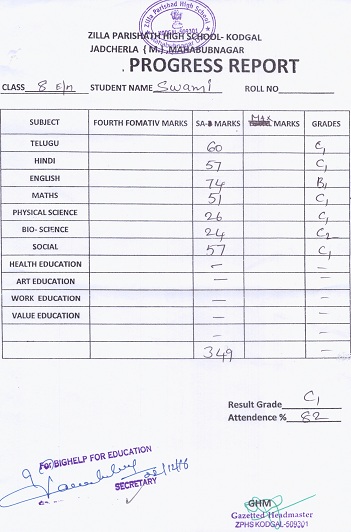 Zilla Parishad High School
KODGAL-509301
ZILLA PARISHATH HIGH SCHOOL- KODGAL
JADCHERLA (M.), MAHABUBNAGAR
PROGRESS REPORT
CLASS 8 E/M STUDENT NAME Swami ROLL NO
SUBJECT FOURTH FOMATIV MARKS SA- MARKS MAX MARKS GRADES
TELUGU 60 C1
HINDI 57 C1
ENGLISH 74 B1
MATHS 51 C1
PHYSICAL SCIENCE 26 C1
BIO- SCIENCE 24 C2
SOCIAL 57 C1
HEALTH EDUCATION — —
ART EDUCATION — —
WORK EDUCATION — —
VALUE EDUCATION — —
— —
349 —
Result Grade C1
Attendence % 82
For BIGHELP FOR EDUCATION
02/12/16
SECRETARY
GHM
Gazetted Headmaster
ZPHS KODGAL-509301